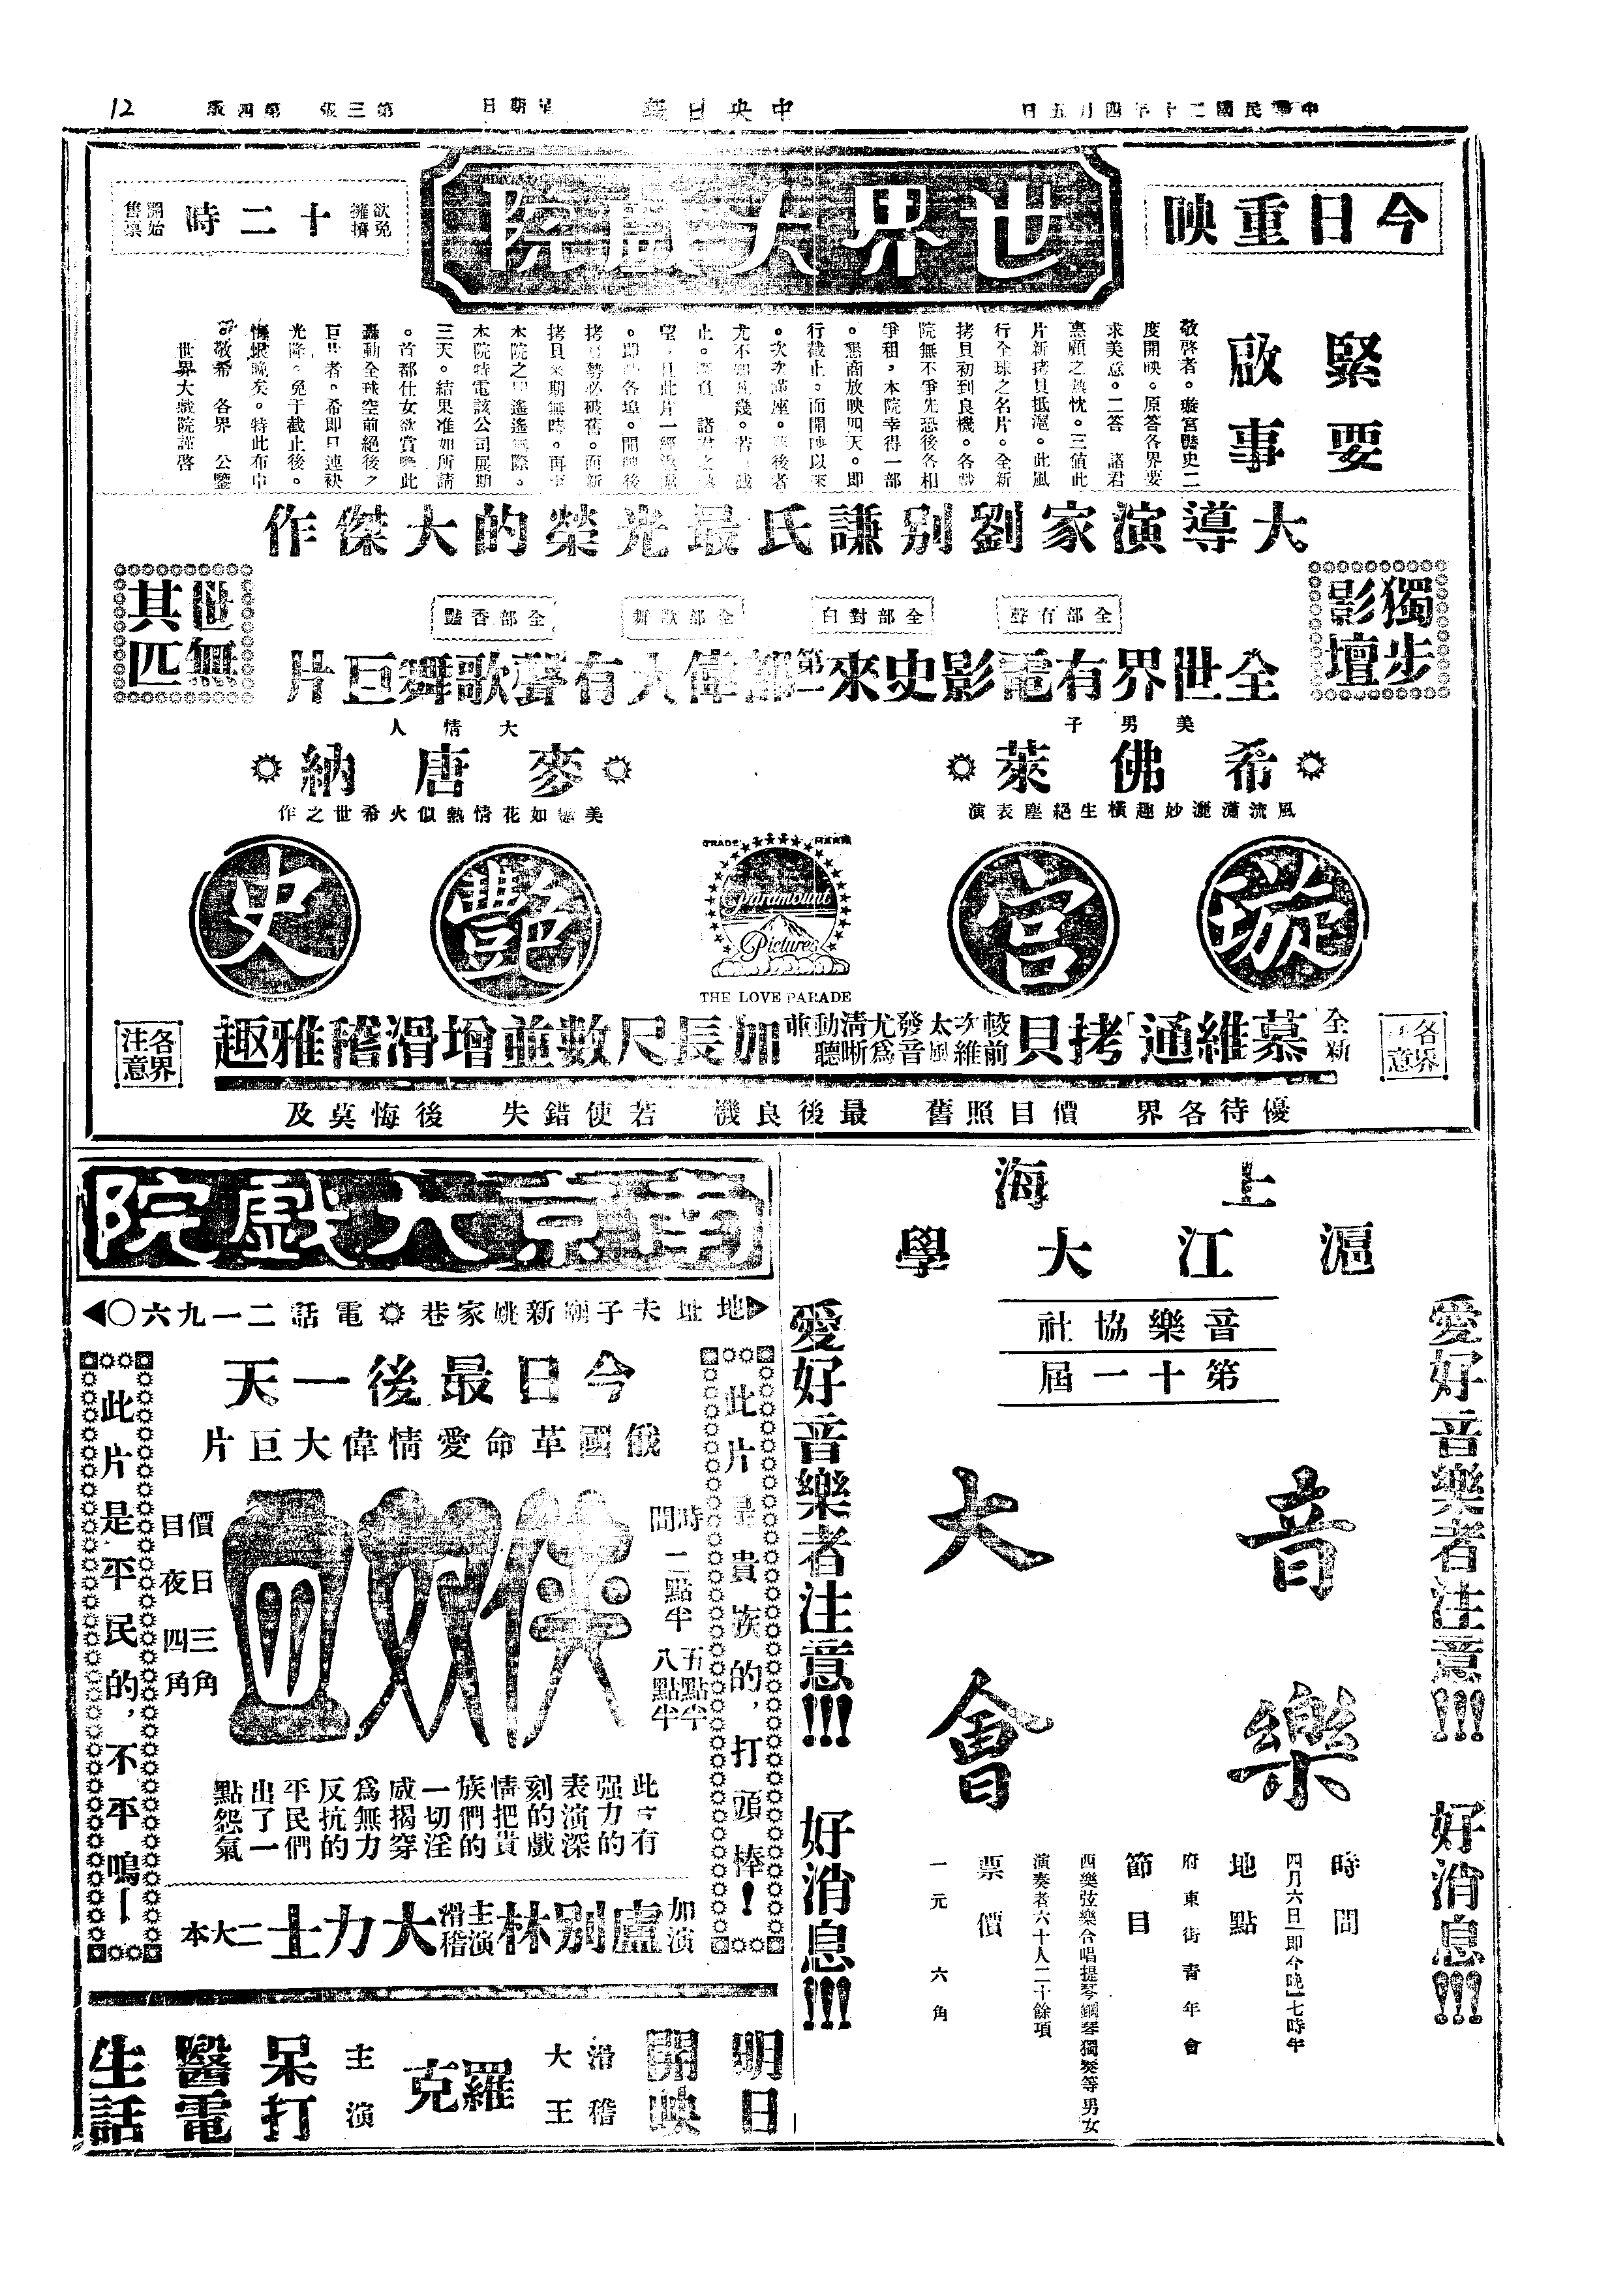 中華民國二十年四月五日
中央日報
星期日
第三張 第四版
12
今日重映
世界大戲院
欲免擁擠
十二時
開始售票
緊要
啟事
敬啓者。璇宮艷史二
度開映。原答各界要
求美意。二答 諸君
惠顧之熱忱。三值此
片新拷貝抵滬。此風
行全球之名片。全新
拷貝初到良機。各戲
院無不爭先恐後各相
爭租，本院幸得一部
。懇商放映四天。即
行截止。而開映以來
。次次滿座。後者
尤不知凡幾。若截
止。諸君之
望。且此片一經
。即各埠。開映後
拷勢必破舊。而新
拷貝來期無時。再
本院之遙遙無際。
本院特電該公司展期
三天。結果准如所請
。首都仕女欲賞此
轟動全球空前絕後之
巨者。希即日連袂
光降。免于截止後。
悔恨晚矣。特此布
敬希 各界 公鑒
世界大戲院謹啓
大導演家劉別謙氏最光榮的大傑作
獨步影壇
世無其匹
全部有聲
全部對白
全部歌舞
全部香豔
全世界有電影史來第二部偉大有聲歌舞巨片
美男子
希佛萊
風流瀟灑妙趣橫生絕塵表演
大情人
麥唐納
美如花情熱似火希世之作
璇宮艷史
TRADE MARK
Paramount
Pictures
THE LOVE PARADE
各界注意
全新「慕維通」拷貝
較前次維太風發音尤為清晰動聽並
加長尺數並增滑稽雅趣
各界注意
優待各界 價目照舊 最後良機 若使錯失 後悔莫及
上海
滬江大學
音樂協社
第十一屆
愛好音樂者注意!!! 好消息!!!
音樂
大會
愛好音樂者注意!!! 好消息!!!
時間
四月六日[即今晚]七時半
地點
府東街青年會
節目
西樂弦樂合唱提琴鋼琴獨奏等男女
演奏者六十人二十餘項
票價
一元 六角
南京大戲院
地址夫子廟新姚家巷 電話二一九六〇
今日最後一天
俄國革命愛情偉大巨片
此片是貴族的，打頭棒！
時間 二點半 五點半 八點半
俠奴血
價目 日三角 夜四角
此片是平民的，不平鳴！
此片有
强力的
表演深
刻的戲
情把貴
族們的
一切淫
威揭穿
為無力
反抗的
平民們
出了一
點怨氣
加演 盧別林 主演 滑稽 大力士 二大本
明日
開映
滑稽
大王
羅克
主演
呆打
醫電
生話